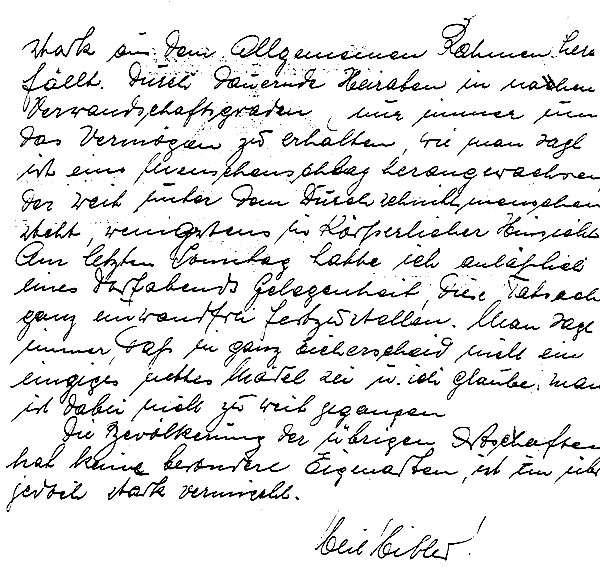 stark aus dem Allgemeinen Rahmen hera
fällt. Durch dauernde Heiraten in nachen
Verwandschaftsgraden, nur immer um
das Vermögen zu erhalten, wie man sagt
ist eine Menschenschlag herangewachsen
der weit unter dem Durchschnittsmenschen
steht, wenigstens in Körperlicher Hinsicht
Am letzten Sonntag hatte ich anläßlich
eines Dorfabends Gelegenheit, diese Tatsach
ganz einwandfrei festzustellen. Man sagt
immer, daß in ganz nicht ein
einziges nettes Mädel sei u. ich glaube, man
ist dabei nicht zu weit gegangen
Die Bevölkerung der übrigen Ortschaften
hat keine besondere Eigenarten, ist im übr
jedoch stark vermischt.
Heil Hitler!